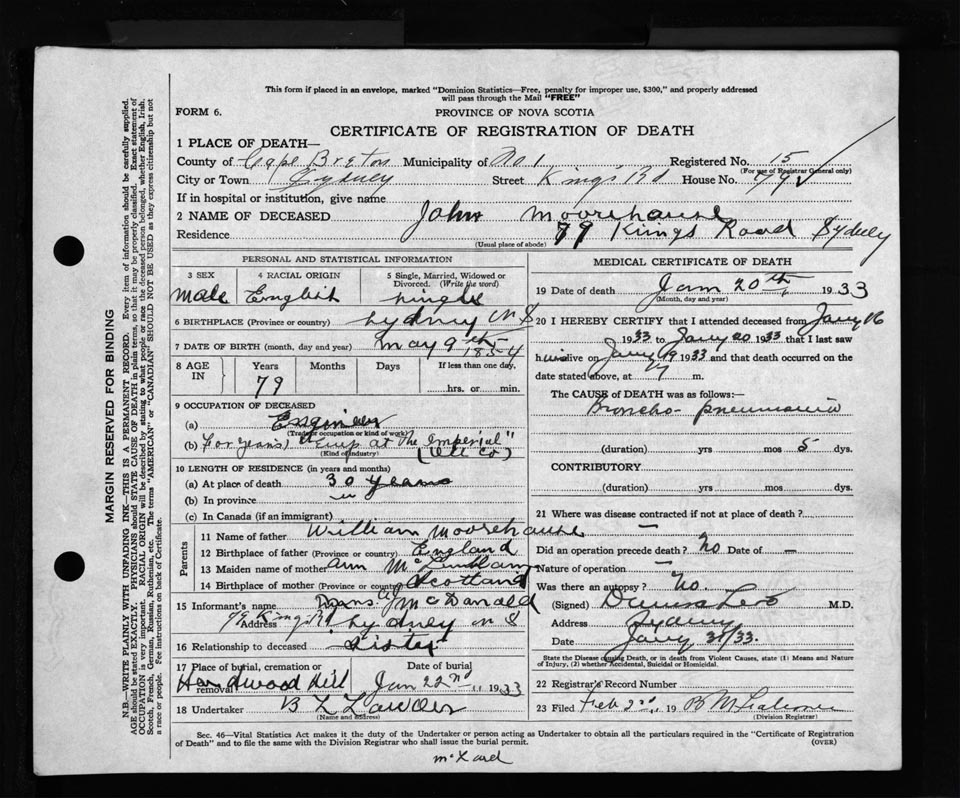 This form if placed in an envelope, marked "Dominion Statistics—Free, penalty for improper use, $300," and properly addressed
will pass through the Mail "FREE"
FORM 6.
PROVINCE OF NOVA SCOTIA
CERTIFICATE OF REGISTRATION OF DEATH
1 PLACE OF DEATH—
County of Cape Breton Municipality of No 1 Registered No. 15
(For use of Registrar General only)
City or Town Sydney Street Kings Rd House No. 79
If in hospital or institution, give name
2 NAME OF DECEASED John Moorehouse
Residence 79 Kings Road Sydney
(Usual place of abode)
PERSONAL AND STATISTICAL INFORMATION
3 SEX 4 RACIAL ORIGIN 5 Single, Married, Widowed or
Divorced. (Write the word)
Male English single
6 BIRTHPLACE (Province or country) Sydney N S
7 DATE OF BIRTH (month, day and year) May 9th 1854
8 AGE IN Years Months Days If less than one day,
79 hrs. or min.
9 OCCUPATION OF DECEASED
(a) Engineer
(Trade, occupation or kind of work)
(b) For years at the "Imperial"
(Kind of industry) (Oil Co)
10 LENGTH OF RESIDENCE (in years and months)
(a) At place of death 30 years
(b) In province
(c) In Canada (if an immigrant)
Parents
11 Name of father William Moorehouse
12 Birthplace of father (Province or country) England
13 Maiden name of mother Ann
14 Birthplace of mother (Province or country) Scotland
15 Informant's name McDanald
Address 79 Kings Rd Sydney N S
16 Relationship to deceased Sister
17 Place of burial, cremation or removal Date of burial
Hardwood Hill Jan 22nd 1933
18 Undertaker
(Name and address)
MEDICAL CERTIFICATE OF DEATH
19 Date of death Jan 20th 1933
(Month, day and year)
20 I HEREBY CERTIFY that I attended deceased from Jany 16
1933 to Jany 20 1933 that I last saw
h im alive on Jany 19 1933 and that death occurred on the
date stated above, at m.
The CAUSE OF DEATH was as follows:—
Broncho-pneumonia
(duration) yrs mos 5 dys.
CONTRIBUTORY
(duration) yrs mos dys.
21 Where was disease contracted if not at place of death? —
Did an operation precede death? No Date of —
Nature of operation —
Was there an autopsy? No.
(Signed) M.D.
Address Sydney
Date Jany 31/33.
State the Disease causing Death, or in death from Violent Causes, state (1) Means and Nature
of Injury, (2) whether Accidental, Suicidal or Homicidal.
22 Registrar's Record Number
23 Filed Feb 2nd 19
(Division Registrar)
Sec. 46—Vital Statistics Act makes it the duty of the Undertaker or person acting as Undertaker to obtain all the particulars required in the "Certificate of Registration
of Death" and to file the same with the Division Registrar who shall issue the burial permit. (OVER)
MARGIN RESERVED FOR BINDING
N.B.—WRITE PLAINLY WITH UNFADING INK—THIS IS A PERMANENT RECORD. Every item of information should be carefully supplied.
AGE should be stated EXACTLY. PHYSICIANS should STATE CAUSE OF DEATH in plain terms, so that it may be properly classified. Exact statement of
OCCUPATION is very important. RACIAL ORIGIN will be described by stating to what people or race the deceased person belonged, whether English, Irish,
Scotch, French, German, Russian, Ruthenian, etc. The terms "AMERICAN" or "CANADIAN" SHOULD NOT BE USED as they express citizenship but not
a race or people. Fee instructions on back of Certificate.